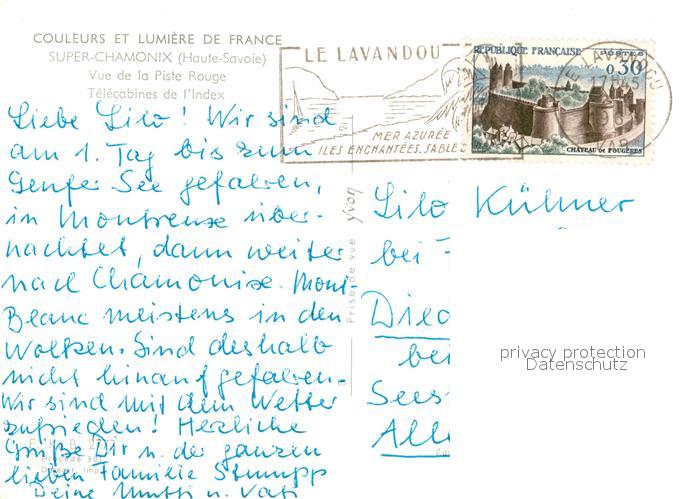 COULEURS ET LUMIÈRE DE FRANCE
SUPER-CHAMONIX (Haute-Savoie)
Vue de la Piste Rouge
Télécabines de l'Index
LE LAVANDOU
MER AZURÉE
ILES ENCHANTÉES. SABLE
RÉPUBLIQUE FRANÇAISE
POSTES
0,30
CHÂTEAU de FOUGÈRES
LAVANDOU
Liebe Lilo! Wir sind
am 1. Tag bis zum
Genfer See gefahren,
in Montreux über-
nachtet, dann weiter
nach Chamonix. Mont-
Blanc meistens in den
Wolken. Sind deshalb
nicht hinauf gefahren.
Wir sind mit dem Wetter
zufrieden! Herzliche
Grüße Dir u. der ganzen
lieben Familie Stumpp
Deine Mutti u. Vati
Prise de vue yvon
Lilo Kühner
bei
Died
bei
Sees
All
privacy protection
Datenschutz